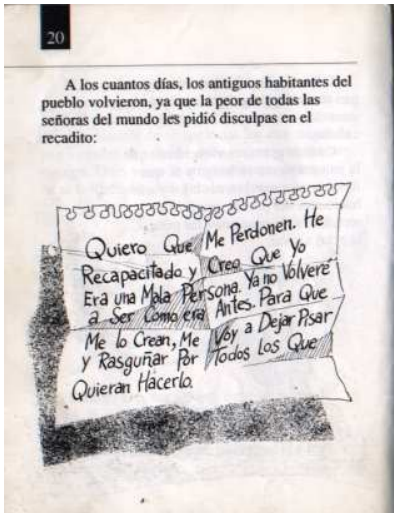 20
A los cuantos días, los antiguos habitantes del
pueblo volvieron, ya que la peor de todas las
señoras del mundo les pidió disculpas en el
recadito:
Quiero Que Me Perdonen. He
Recapacitado y Creo Que Yo
Era una Mala Persona. Ya no Volveré
a Ser Como era Antes. Para Que
Me lo Crean, Me Voy a Dejar Pisar
y Rasguñar Por Todos Los Que
Quieran Hacerlo.